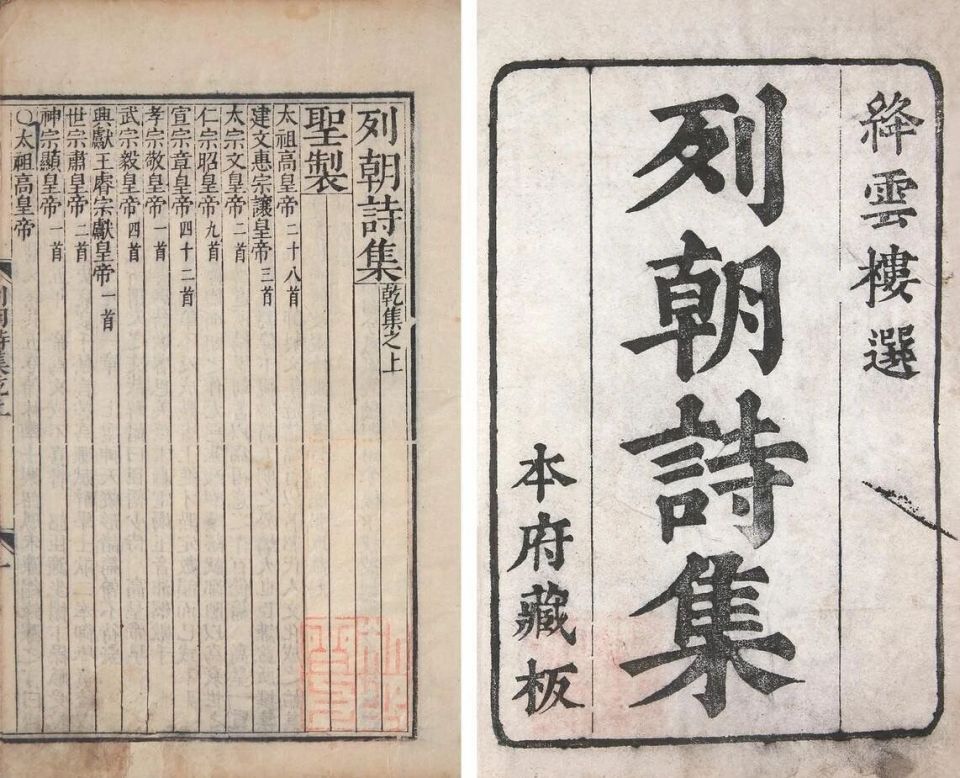 絳雲樓選
列朝詩集
本府藏板
列朝詩集 乾集之上
聖製
太祖高皇帝 二十八首
建文惠宗讓皇帝 三首
太宗文皇帝 二首
仁宗昭皇帝 九首
宣宗章皇帝 四十二首
孝宗敬皇帝 一首
武宗毅皇帝 四首
興獻王睿宗獻皇帝 一首
世宗肅皇帝 二首
神宗顯皇帝 一首
○太祖高皇帝